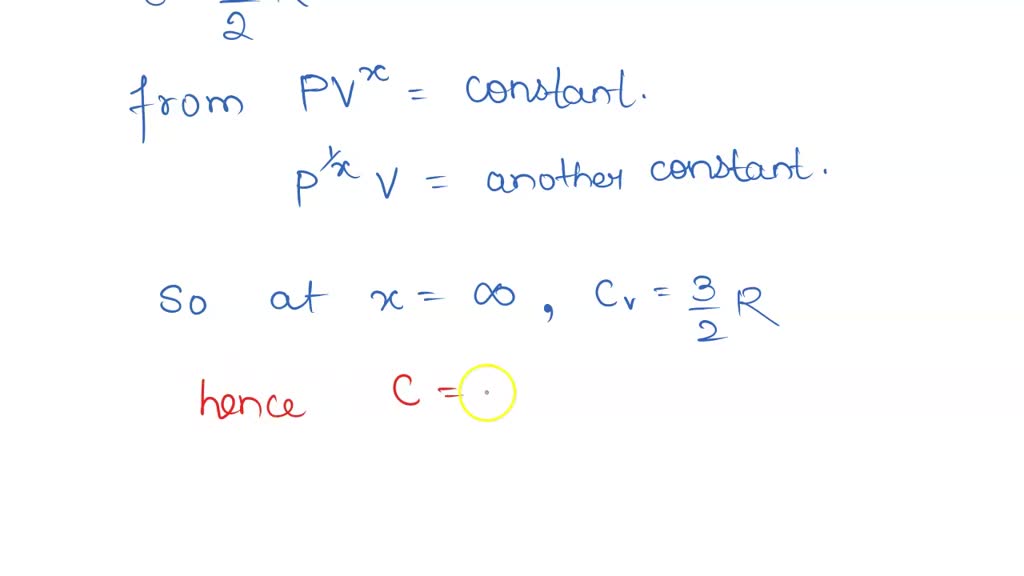 2
from PV^x = constant.
P^1/x V = another constant.
So at x = ∞, Cv = 3/2 R
hence C =